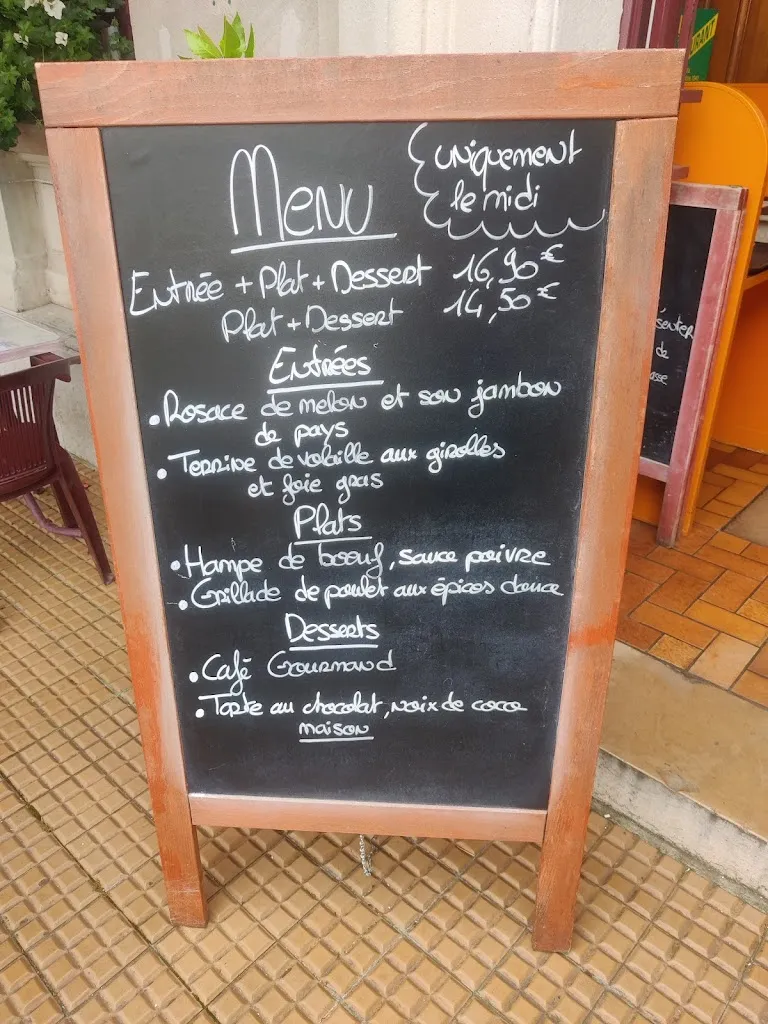 Menu
uniquement
le midi
Entrée + Plat + Dessert 16,90€
Plat + Dessert 14,50€
Entrées
• Rosace de melon et son jambon
de pays
• Terrine de volaille aux girolles
et foie gras
Plats
• Hampe de boeuf, sauce poivre
• Grillade de poulet aux épices douce
Desserts
• Café Gourmand
• Tarte au chocolat, noix de coco
maison
de